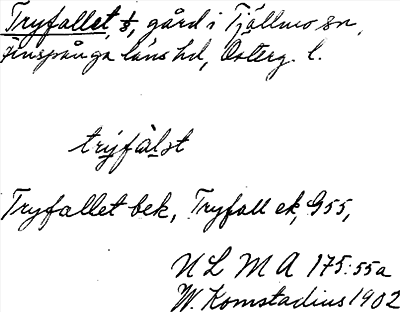 Tryfallet, gård i Tjällmo sn,
Finspånga läns hd, Österg. l.
trýfàlst
Tryfallet bek, Tryfall ek, G55,
ULMA 175:55a
W. Komstadius 1902